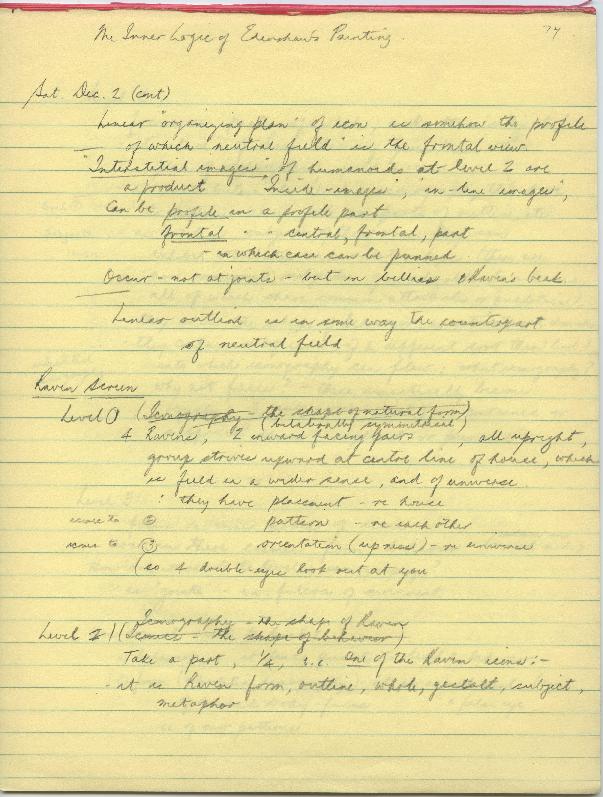 The Inner Logic of Edenshaw's Painting.
Sat. Dec. 2 (cont)
Linear "organizing plan" of icon is somehow the profile
of which "neutral field" is the frontal view.
"Interstitial images" of humanoids at level 2 are
a product "Inside-images", "in-line images",
Can be profile in a profile part
frontal " " central, frontal, part
- in which case can be punned
Occur - not at joints - but in bellies & Raven's beak
Linear outline is in some way the counterpart
of neutral field
Raven Screen
Level 0 (Iconography - the shape of natural form)
(bilaterally symmetrical)
4 Ravens, 2 inward facing pairs, all upright,
group strives upward at centre line of house, which
is field in a wider sense, and of universe.
: they have placement - re house
② pattern - re each other
③ orientation (upness) - re universe
(so 4 double-eyes look out at you
Iconography - the shape of Raven
Level 1 ( - the shape of behavior)
Take a part, 1/4, i.e. one of the Raven icons:-
- it is Raven form, outline, whole, gestalt, subject,
metaphor